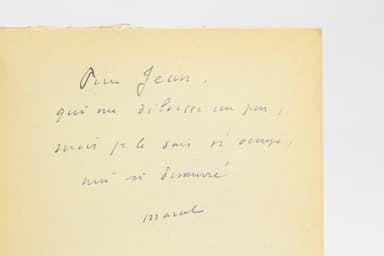 Pour Jean,
qui me délaisse un peu,
mais je le sais si occupé,
moi si désœuvré
Marcel